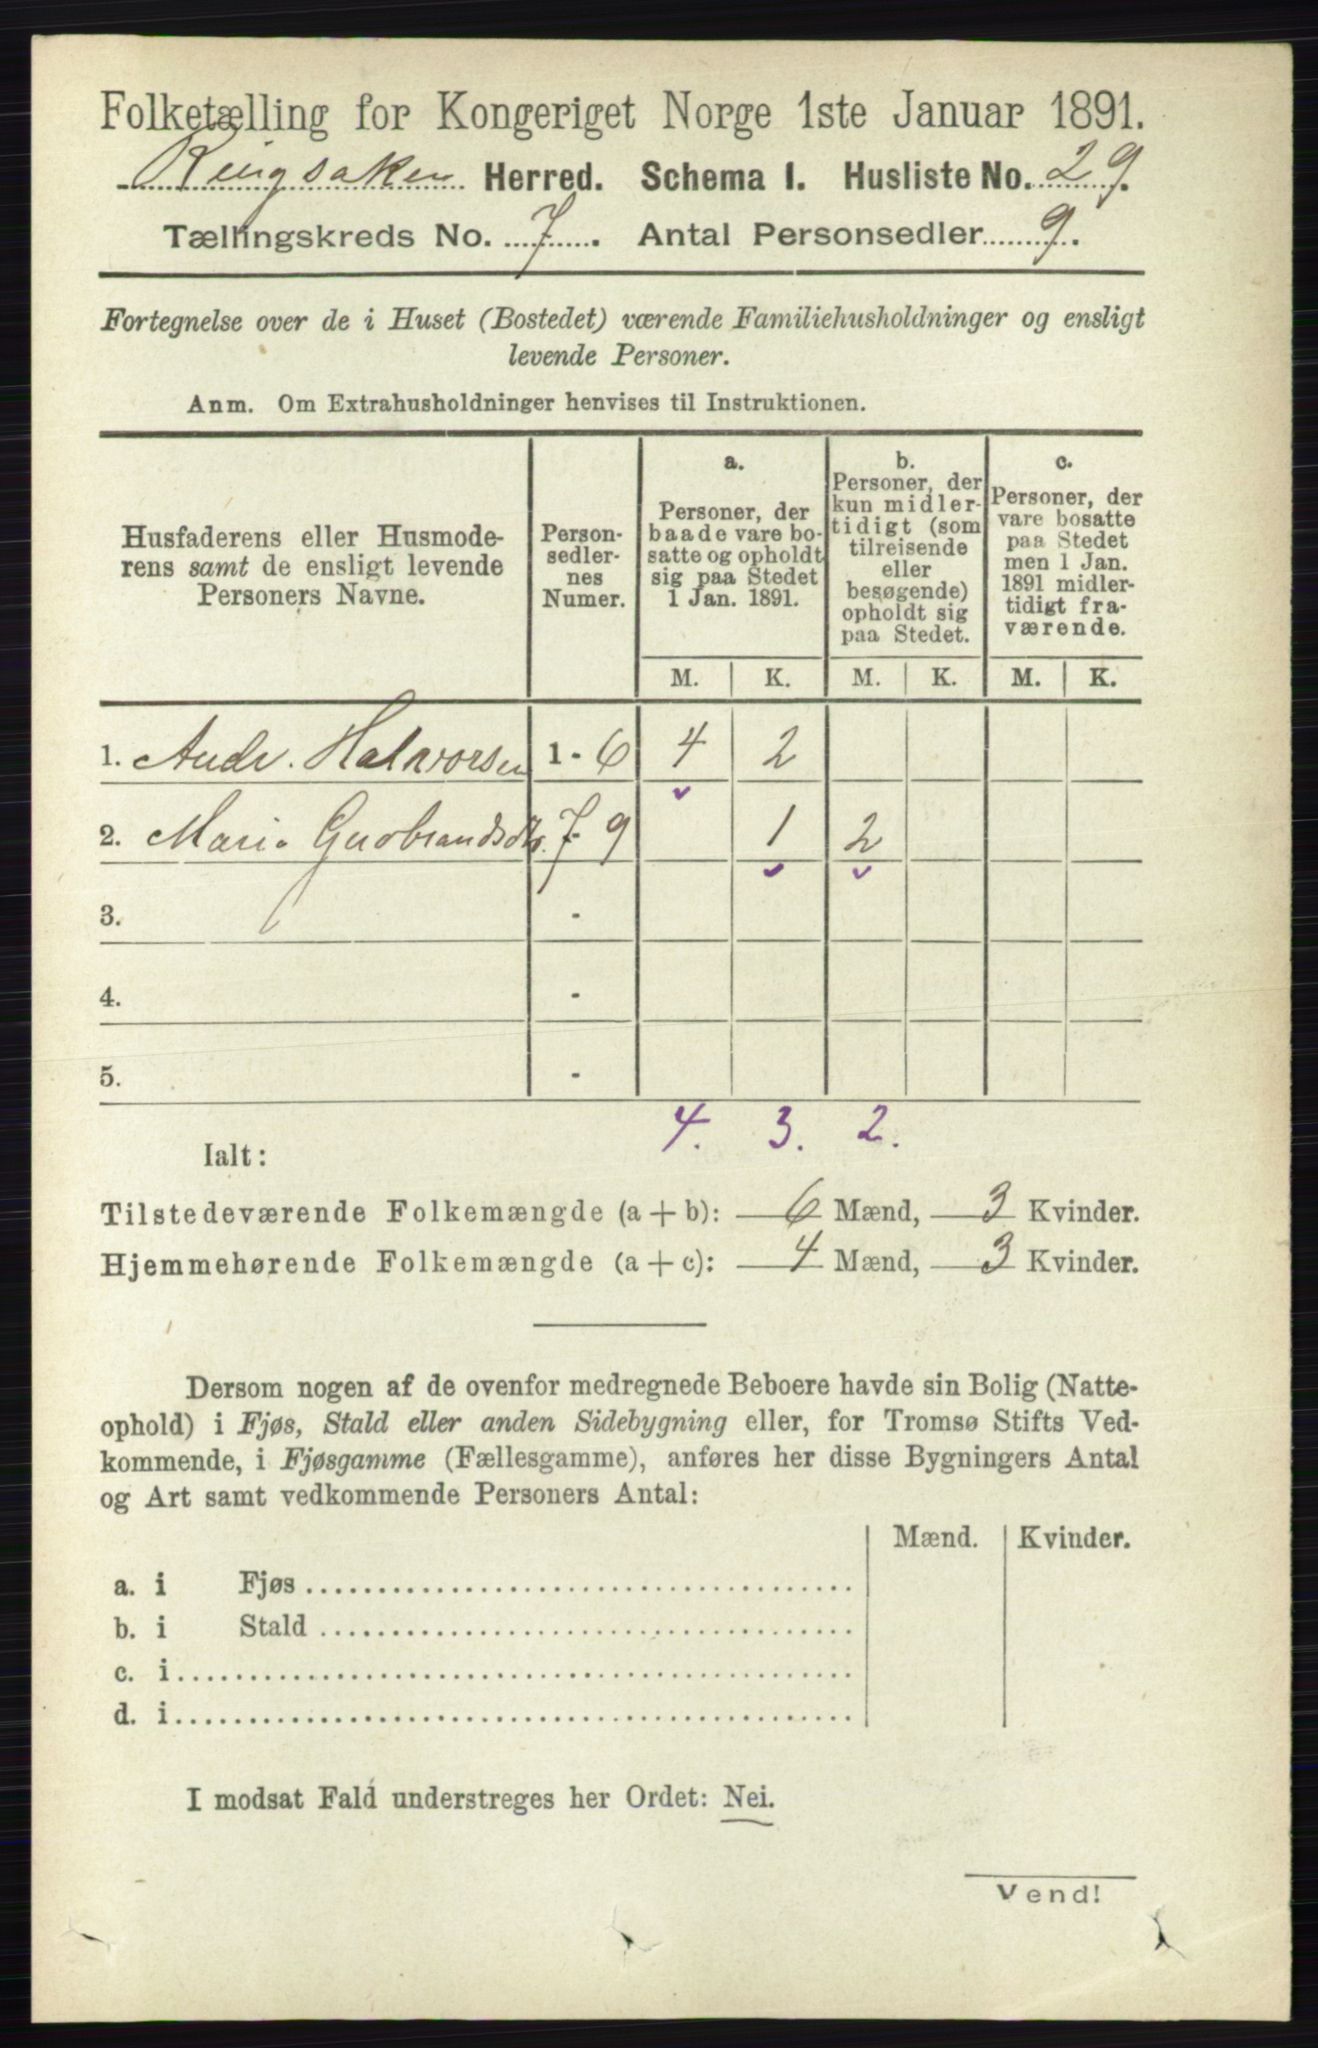 Folketælling for Kongeriget Norge 1ste Januar 1891.
Ringsaker Herred. Schema I. Husliste No. 29.
Tællingskreds No. 7. Antal Personsedler 9.
Fortegnelse over de i Huset (Bostedet) værende Familiehusholdninger og ensligt
levende Personer.
Anm. Om Extrahusholdninger henvises til Instruktionen.
Husfaderens eller Husmode-
rens samt de ensligt levende
Personers Navne.
Person-
sedler-
nes
Numer.
a.
Personer, der
baade vare bo-
satte og opholdt
sig paa Stedet
1 Jan. 1891.
b.
Personer, der
kun midler-
tidigt (som
tilreisende
eller
besøgende)
opholdt sig
paa Stedet.
c.
Personer, der
vare bosatte
paa Stedet
men 1 Jan.
1891 midler-
tidigt fra-
værende.
M. K. M. K. M. K.
1. Andr. Halvorsen 1 - 6 4 2
2. Mari Gudbrandsdtr. 7 - 9 1 2
3. -
4. -
5. -
4. 3. 2.
Ialt:
Tilstedeværende Folkemængde (a + b): 6 Mænd, 3 Kvinder.
Hjemmehørende Folkemængde (a + c): 4 Mænd, 3 Kvinder.
Dersom nogen af de ovenfor medregnede Beboere havde sin Bolig (Natte-
ophold) i Fjøs, Stald eller anden Sidebygning eller, for Tromsø Stifts Ved-
kommende, i Fjøsgamme (Fællesgamme), anføres her disse Bygningers Antal
og Art samt vedkommende Personers Antal:
Mænd. Kvinder.
a. i Fjøs
b. i Stald
c. i
d. i
I modsat Fald understreges her Ordet: Nei.
Vend!